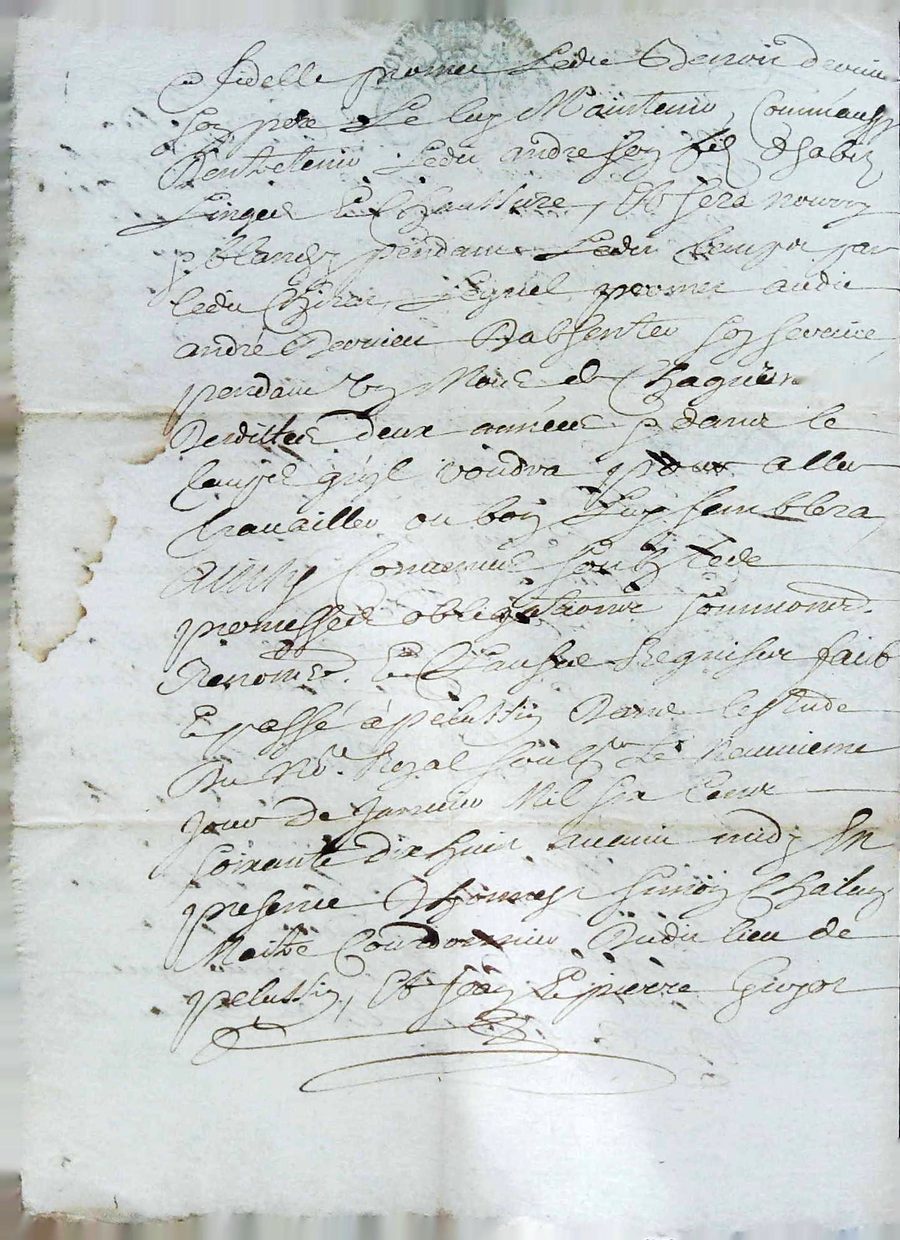 et fidelle promet Ledit Benoit Derieu
son pere Le luy Maintenir, Comm'aussy
D'entretenir Ledit andre son filz D'habitz
Linges Et Chaussure, Et sera nourry
pendant Ledit temps par
ledit Lequel promet audit
andré Derrieu D'absenter son service
pendant un Mois de Chaqune
Desdittes deux années pdant le
temps qu'yl voudra pour aller
travailler ou bon Luy semblera,
Ainsy Convenu soubz
promesses obligations soumions
Renons Et Clausue Requises fait
Et passé à pelussin Dans lestude
Du No.re Royal soub.né Le Neuvieme
Jour de Janvier Mil six Cent
soixante dix huit avant midy En
presence D'honneste simon
Maitre Courdonnier Dudit lieu de
pelussin, Et sieur pierre